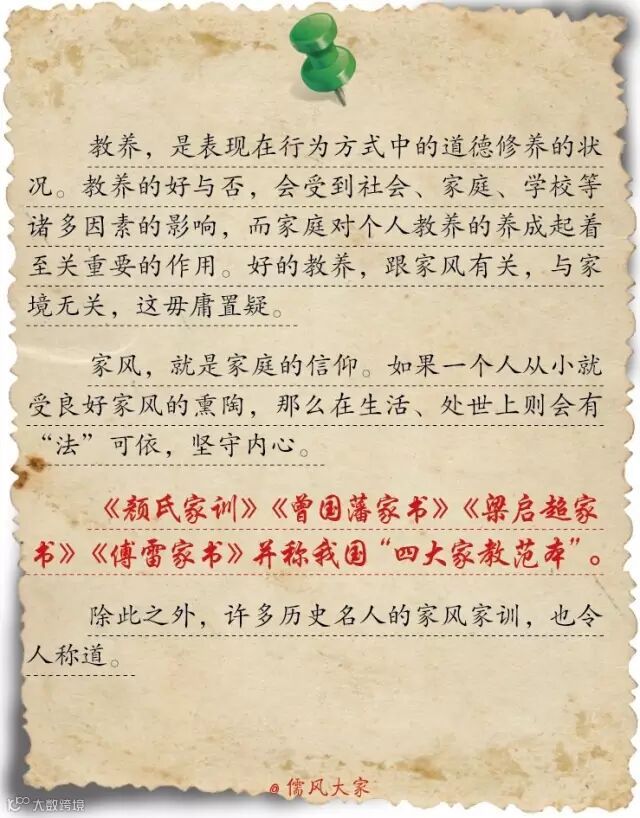 教养，是表现在行为方式中的道德修养的状
况。教养的好与否，会受到社会、家庭、学校等
诸多因素的影响，而家庭对个人教养的养成起着
至关重要的作用。好的教养，跟家风有关，与家
境无关，这毋庸置疑。
家风，就是家庭的信仰。如果一个人从小就
受良好家风的熏陶，那么在生活、处世上则会有
“法”可依，坚守内心。
《颜氏家训》《曾国藩家书》《梁启超家
书》《傅雷家书》并称我国“四大家教范本”。
除此之外，许多历史名人的家风家训，也令
人称道。
@儒风大家
大数跨境